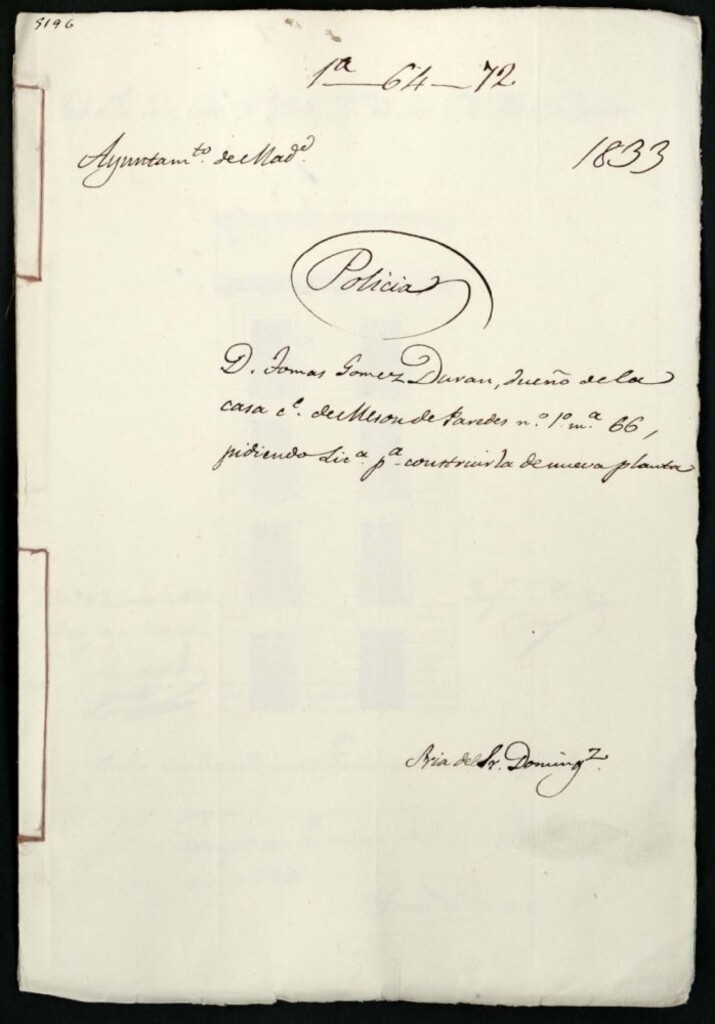 5196
1ª—64—72
Ayuntamto. de Madd.
1833
Policia
D. Tomas Gomez Duran, dueño de la
casa ce. de Meson de Paredes n.º 1.º m.ª 66,
pidiendo Lica. pª construirla de nueva planta
Sria del Sr. Domingz.